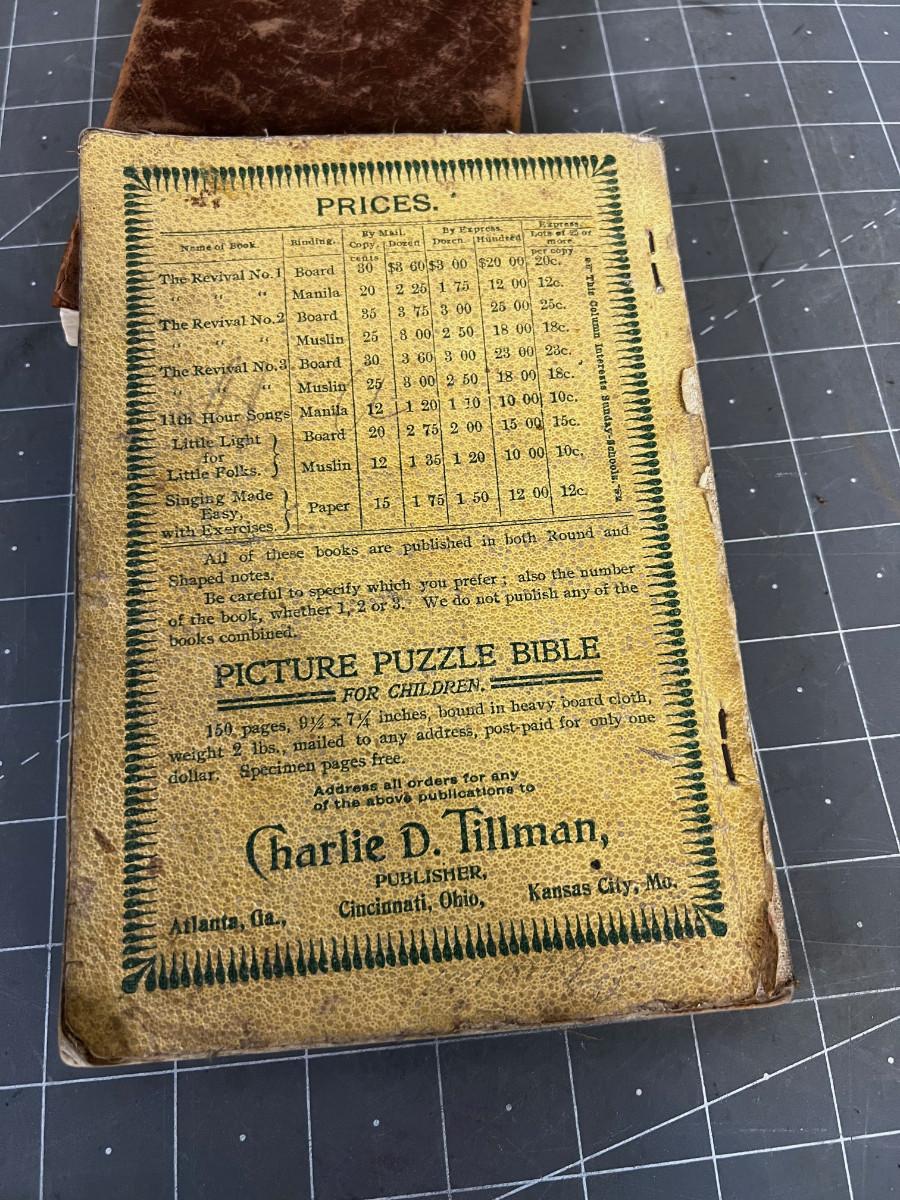 PRICES.
Name of Book Binding. By Mail. By Express. Express. Lots of 25 or more.
Copy. Dozen Dozen Hundred per copy
cents
The Revival No. 1 Board 30 $3 60 $3 00 $20 00 20c.
“ “ “ Manila 20 2 25 1 75 12 00 12c.
The Revival No. 2 Board 35 3 75 3 00 25 00 25c.
“ “ “ Muslin 25 3 00 2 50 18 00 18c.
The Revival No. 3 Board 30 3 60 3 00 23 00 23c.
“ “ “ Muslin 25 3 00 2 50 18 00 18c.
11th Hour Songs Manila 12 1 20 1 10 10 00 10c.
Little Light for Little Folks. Board 20 2 75 2 00 15 00 15c.
Muslin 12 1 35 1 20 10 00 10c.
Singing Made Easy, with Exercises. Paper 15 1 75 1 50 12 00 12c.
This Column Interests Sunday-Schools.
All of these books are published in both Round and
Shaped notes.
Be careful to specify which you prefer; also the number
of the book, whether 1, 2 or 3. We do not publish any of the
books combined.
PICTURE PUZZLE BIBLE
FOR CHILDREN.
150 pages, 9½ x 7¼ inches, bound in heavy board cloth,
weight 2 lbs., mailed to any address, post-paid for only one
dollar. Specimen pages free.
Address all orders for any
of the above publications to
Charlie D. Tillman,
PUBLISHER,
Atlanta, Ga., Cincinnati, Ohio, Kansas City, Mo.